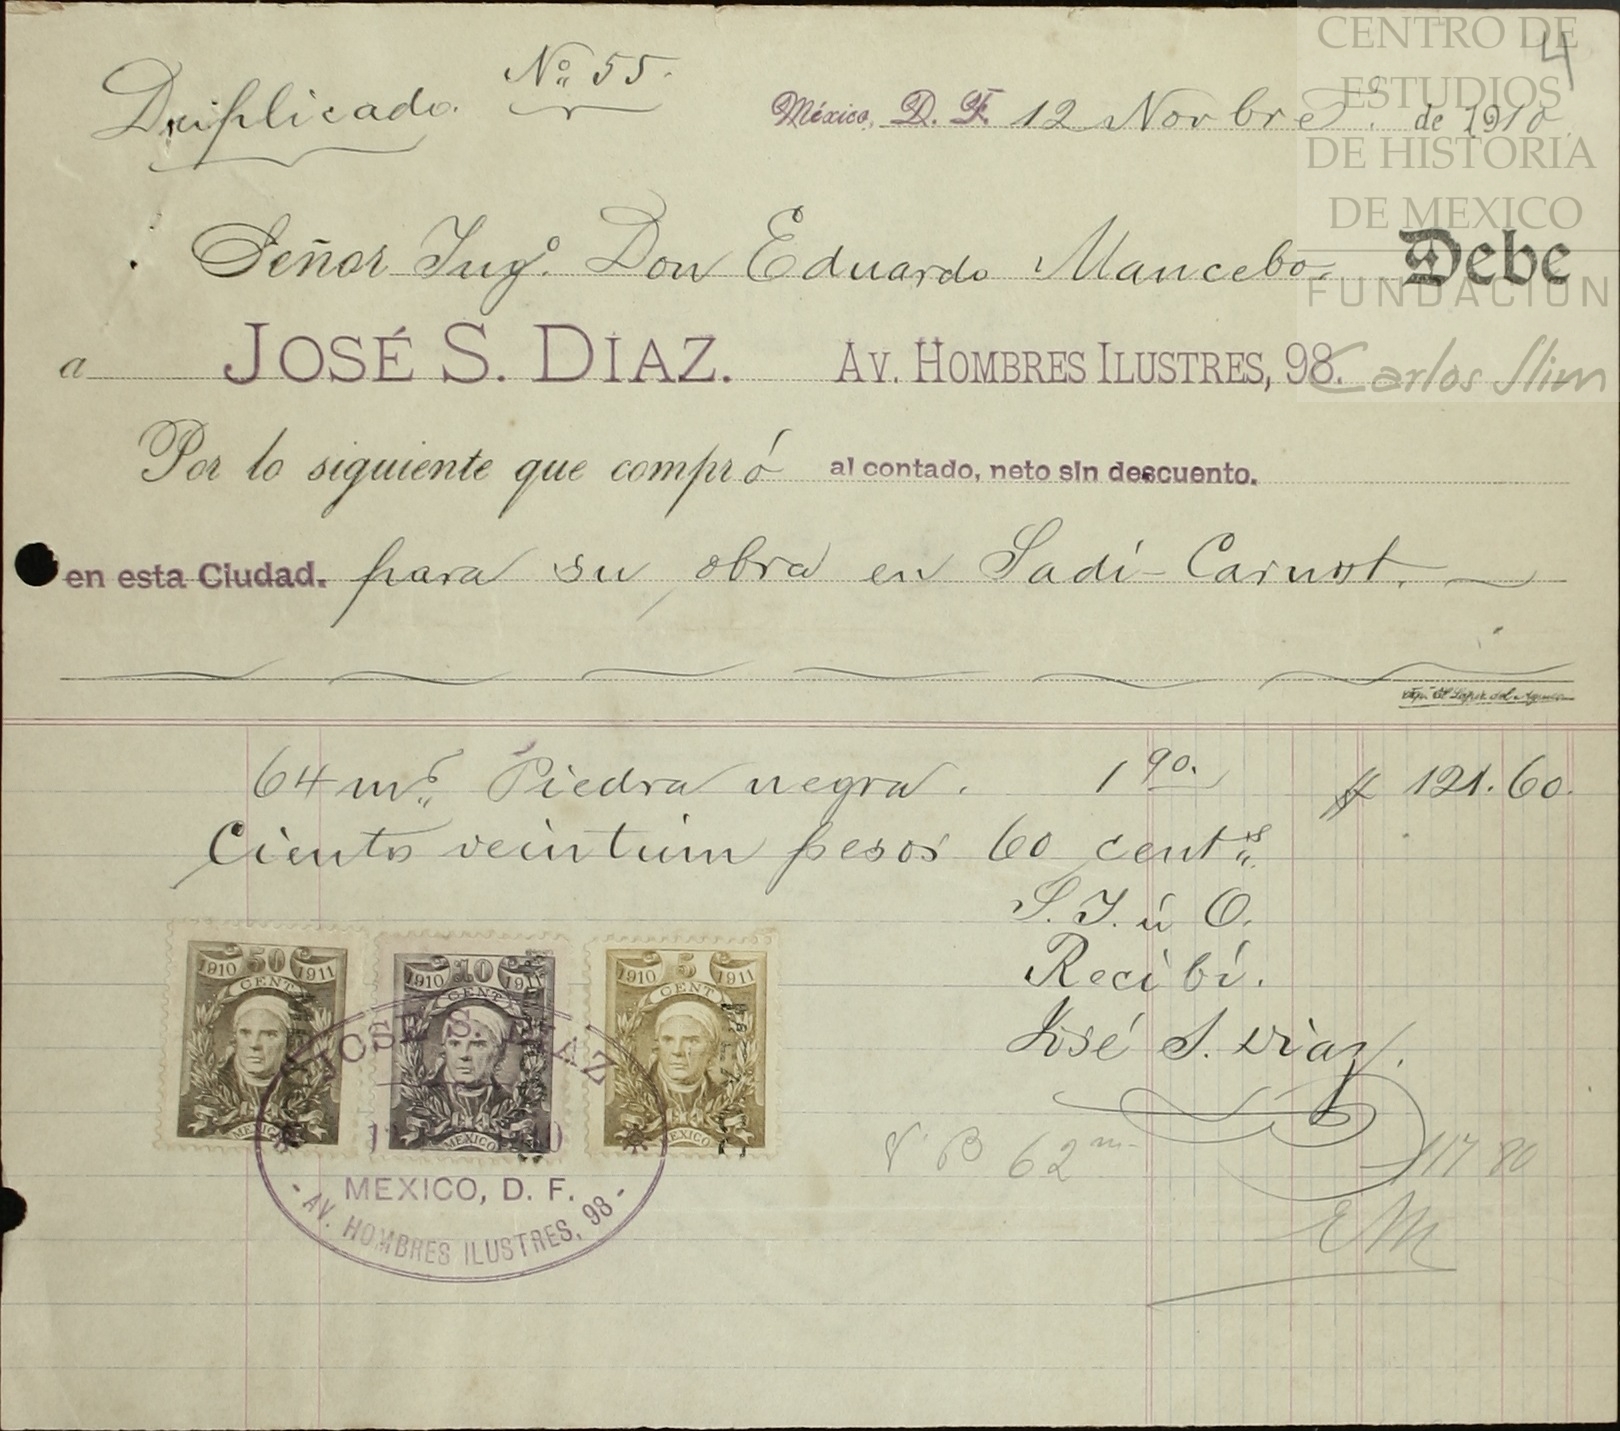 CENTRO DE
ESTUDIOS
DE HISTORIA
DE MEXICO
FUNDACION
Carlos Slim
4
Duplicado. Nº 55.
México, D. F. 12 Novbre. de 1910
Señor Ingº. Don Eduardo Mancebo. Debe
a JOSÉ S. DIAZ. AV. HOMBRES ILUSTRES, 98.
Por lo siguiente que compró al contado, neto sin descuento.
en esta Ciudad. para su obra en Sadi-Carnot.
64 ms. Piedra negra. 1 90. $ 121.60.
Ciento veintiun pesos 60 cents.
S. Y. ú O.
Recibí.
José S. Diaz.
1910 50 1911
CENT
MEXICO
1910 10 1911
CENT
MEXICO
1910 5 1911
CENT
MEXICO
JOSE S. DIAZ
MEXICO, D. F.
- AV. HOMBRES ILUSTRES, 98 -
V. B 62 m. 117 80
EM